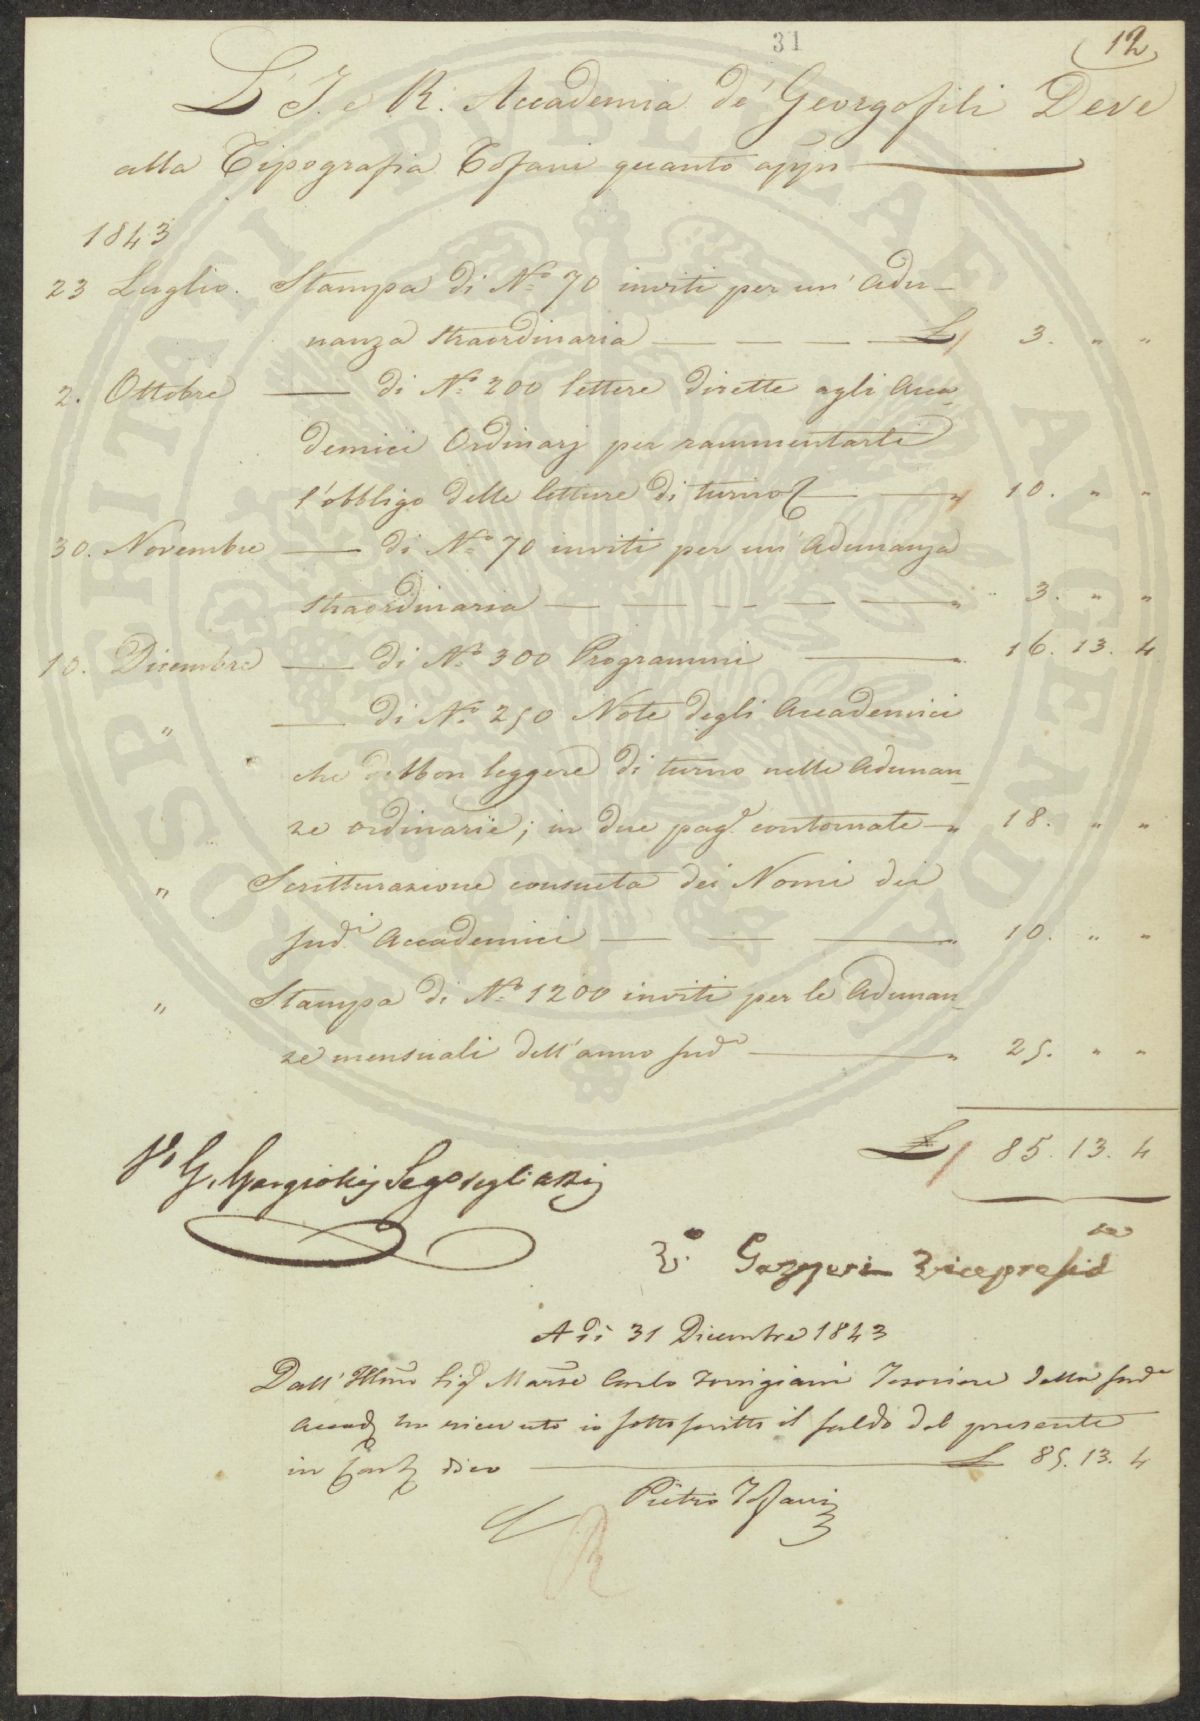 31
12
L'I. e R. Accademia de' Georgofili Deve
alla Tipografia Tofani quanto app.
1843
23 Luglio. Stampa di N.o 70 inviti per un' Adu-
nanza straordinaria L 3. " "
2. Ottobre — di N.o 200 lettere dirette agli Acca-
demici Ordinarj per rammentarli
l'obbligo delle letture di turno " 10. " "
30. Novembre — di N.o 70 inviti per un' Adunanza
straordinaria " 3. " "
10. Dicembre — di N.o 300 Programmi " 16. 13. 4
" — di N.o 250 Note degli Accademici
che debbon leggere di turno nelle Adunan-
ze ordinarie; in due pag.e contornate " 18. " "
" Scritturazione consueta dei Nomi dei
sud.i Accademici " 10. " "
" Stampa di N.o 1200 inviti per le Adunan-
ze mensuali dell'anno sud.o " 25. " "
L 85. 13. 4
V.o G. Seg.o degli atti
V.o Gazzeri Vicepresid.te
A dì 31 Dicembre 1843
Dall' Illmo Sig. March.e Carlo Torrigiani Tesoriere della sud.a
Accad. ho ricevuto io sottoscritto il saldo del presente
in dico L 85. 13. 4
Pietro Tofani
PROSPERITATI PUBLICAE AVGENDAE